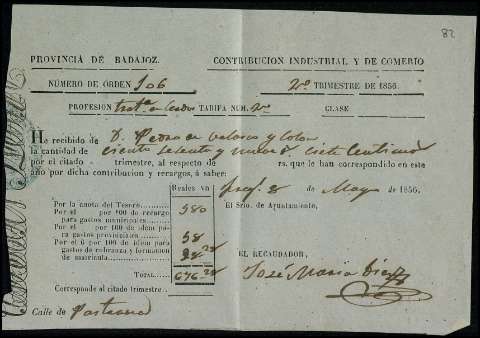 82
PROVINCIA DE BADAJOZ. CONTRIBUCION INDUSTRIAL Y DE COMERIO
NÚMERO DE ÓRDEN 106 2º TRIMESTRE DE 1856.
PROFESION TARIFA NUM. 2º CLASE
He recibido de D. Pedro
la cantidad de ciento setenta y nueve siete centimos
por el citado trimestre, al respecto de rs. que le han correspondido en este
año por dicha contribucion y recargos, á saber:
Reales vn
de Mayo de 1856.
Por la cuota del Tesoro 580
El Srio. de Ayuntamiento,
Por el por 100 de recargo
para gastos municipales
Por el por 100 de idem para
gastos provinciales 58
Por el 6 por 100 de idem para
gastos de cobranza y formacion
de matrícula 38 28
EL RECAUDADOR,
TOTAL 676 28
José Maria Diaz
Corresponde al citado trimestre
Calle de